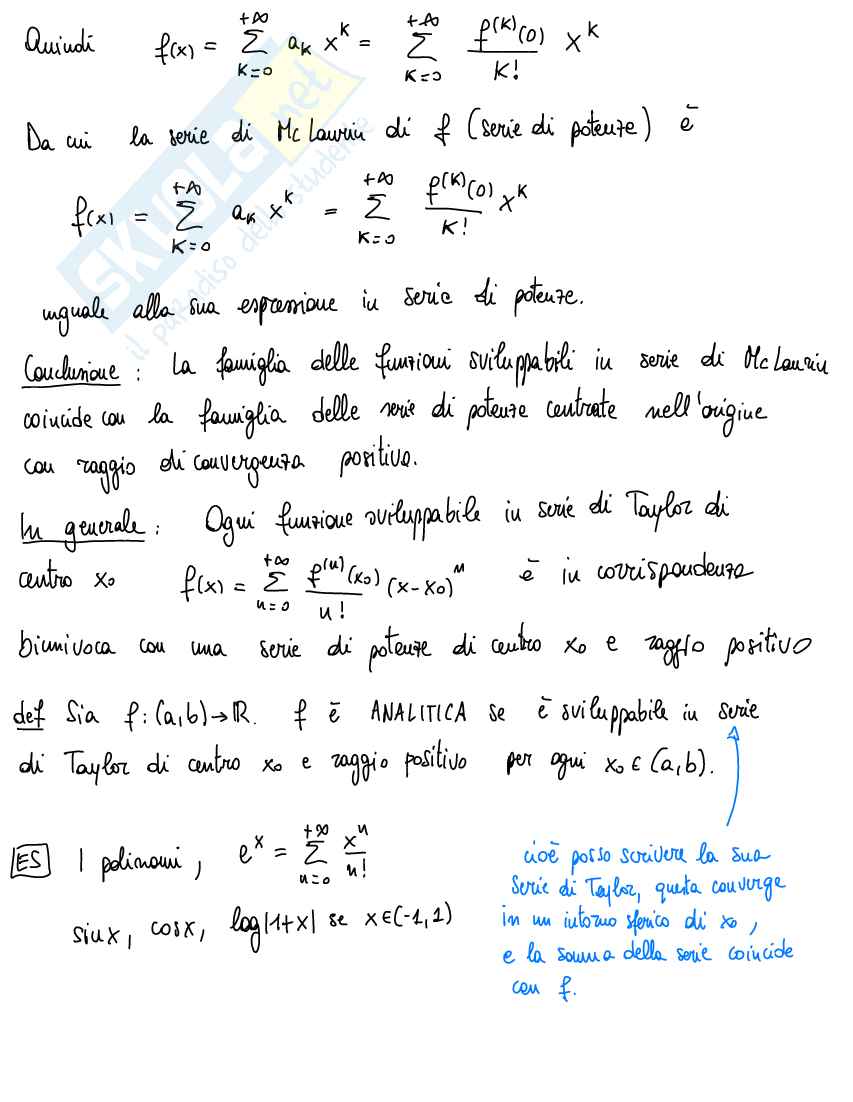 Quindi f(x) = ∑_{k=0}^{+∞} a_k x^k = ∑_{k=0}^{+∞} f^{(k)}(0)/k! x^k
Da cui la serie di Mc Laurin di f (serie di potenze) è
f(x) = ∑_{k=0}^{+∞} a_k x^k = ∑_{k=0}^{+∞} f^{(k)}(0)/k! x^k
uguale alla sua espressione in serie di potenze.
Conclusione : La famiglia delle funzioni sviluppabili in serie di Mc Laurin
coincide con la famiglia delle serie di potenze centrate nell'origine
con raggio di convergenza positivo.
In generale : Ogni funzione sviluppabile in serie di Taylor di
centro x₀ f(x) = ∑_{n=0}^{+∞} f^{(n)}(x₀)/n! (x-x₀)^n è in corrispondenza
biunivoca con una serie di potenze di centro x₀ e raggio positivo
def Sia f : (a,b) → ℝ. f è ANALITICA se è sviluppabile in serie
di Taylor di centro x₀ e raggio positivo per ogni x₀ ∈ (a,b).
ES I polinomi, e^x = ∑_{n=0}^{+∞} x^n/n!
sin x, cos x, log|1+x| se x ∈ (-1,1)
cioè posso scrivere la sua
serie di Taylor, questa converge
in un intorno sferico di x₀,
e la somma della serie coincide
con f.
SKUOLA.net
il paradiso dello studente